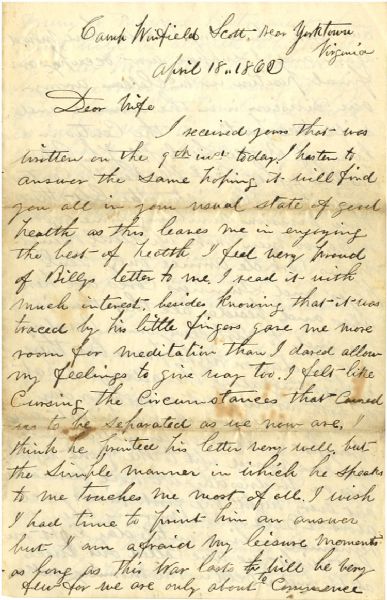 Camp Winfield Scott. Near Yorktown
Virginia
April 18.. 1862
Dear Wife
I received yours that was
written on the 9th inst today. I hasten to
answer the same hoping it will find
you all in your usual state of good
health as this leaves me in enjoying
the best of health I feel very proud
of Billys letter to me. I read it with
much interest. besides knowing that it was
traced by his little fingers gave me more
room for meditation than I dared allow
my feelings to give way too. I felt like
Cursing the Circumstances that Caused
us to be separated as we now are. I
think he printed his letter very well but
the Simple manner in which he speaks
to me touches me most of all. I wish
I had time to print him an answer
but I am afraid my leisure moments
as long as this War lasts will be very
few for we are only about to Commence